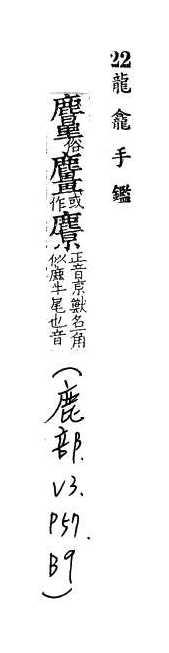 22 龍龕手鑑
俗麠或作麖正音京獸名一角似鹿牛尾也音(鹿部.V3.P57.B9)